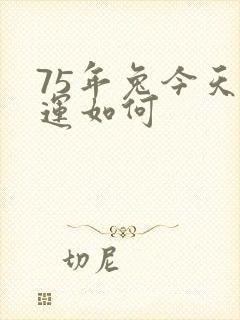 75年兔今天
運如何
切尼